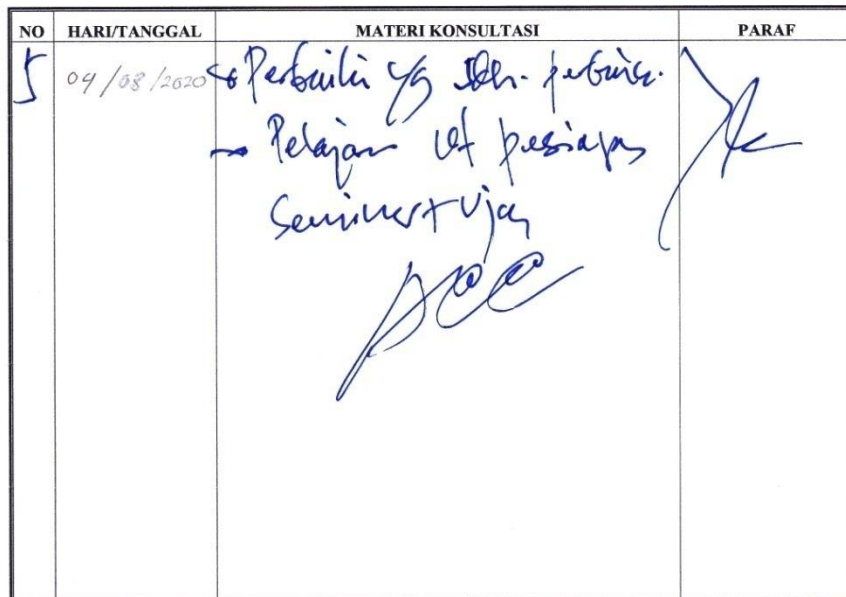 NO HARI/TANGGAL MATERI KONSULTASI PARAF
5 04/08/2020 Perbaiki yg
Pelajari ut persiapan
Seminar + Ujian
ACC